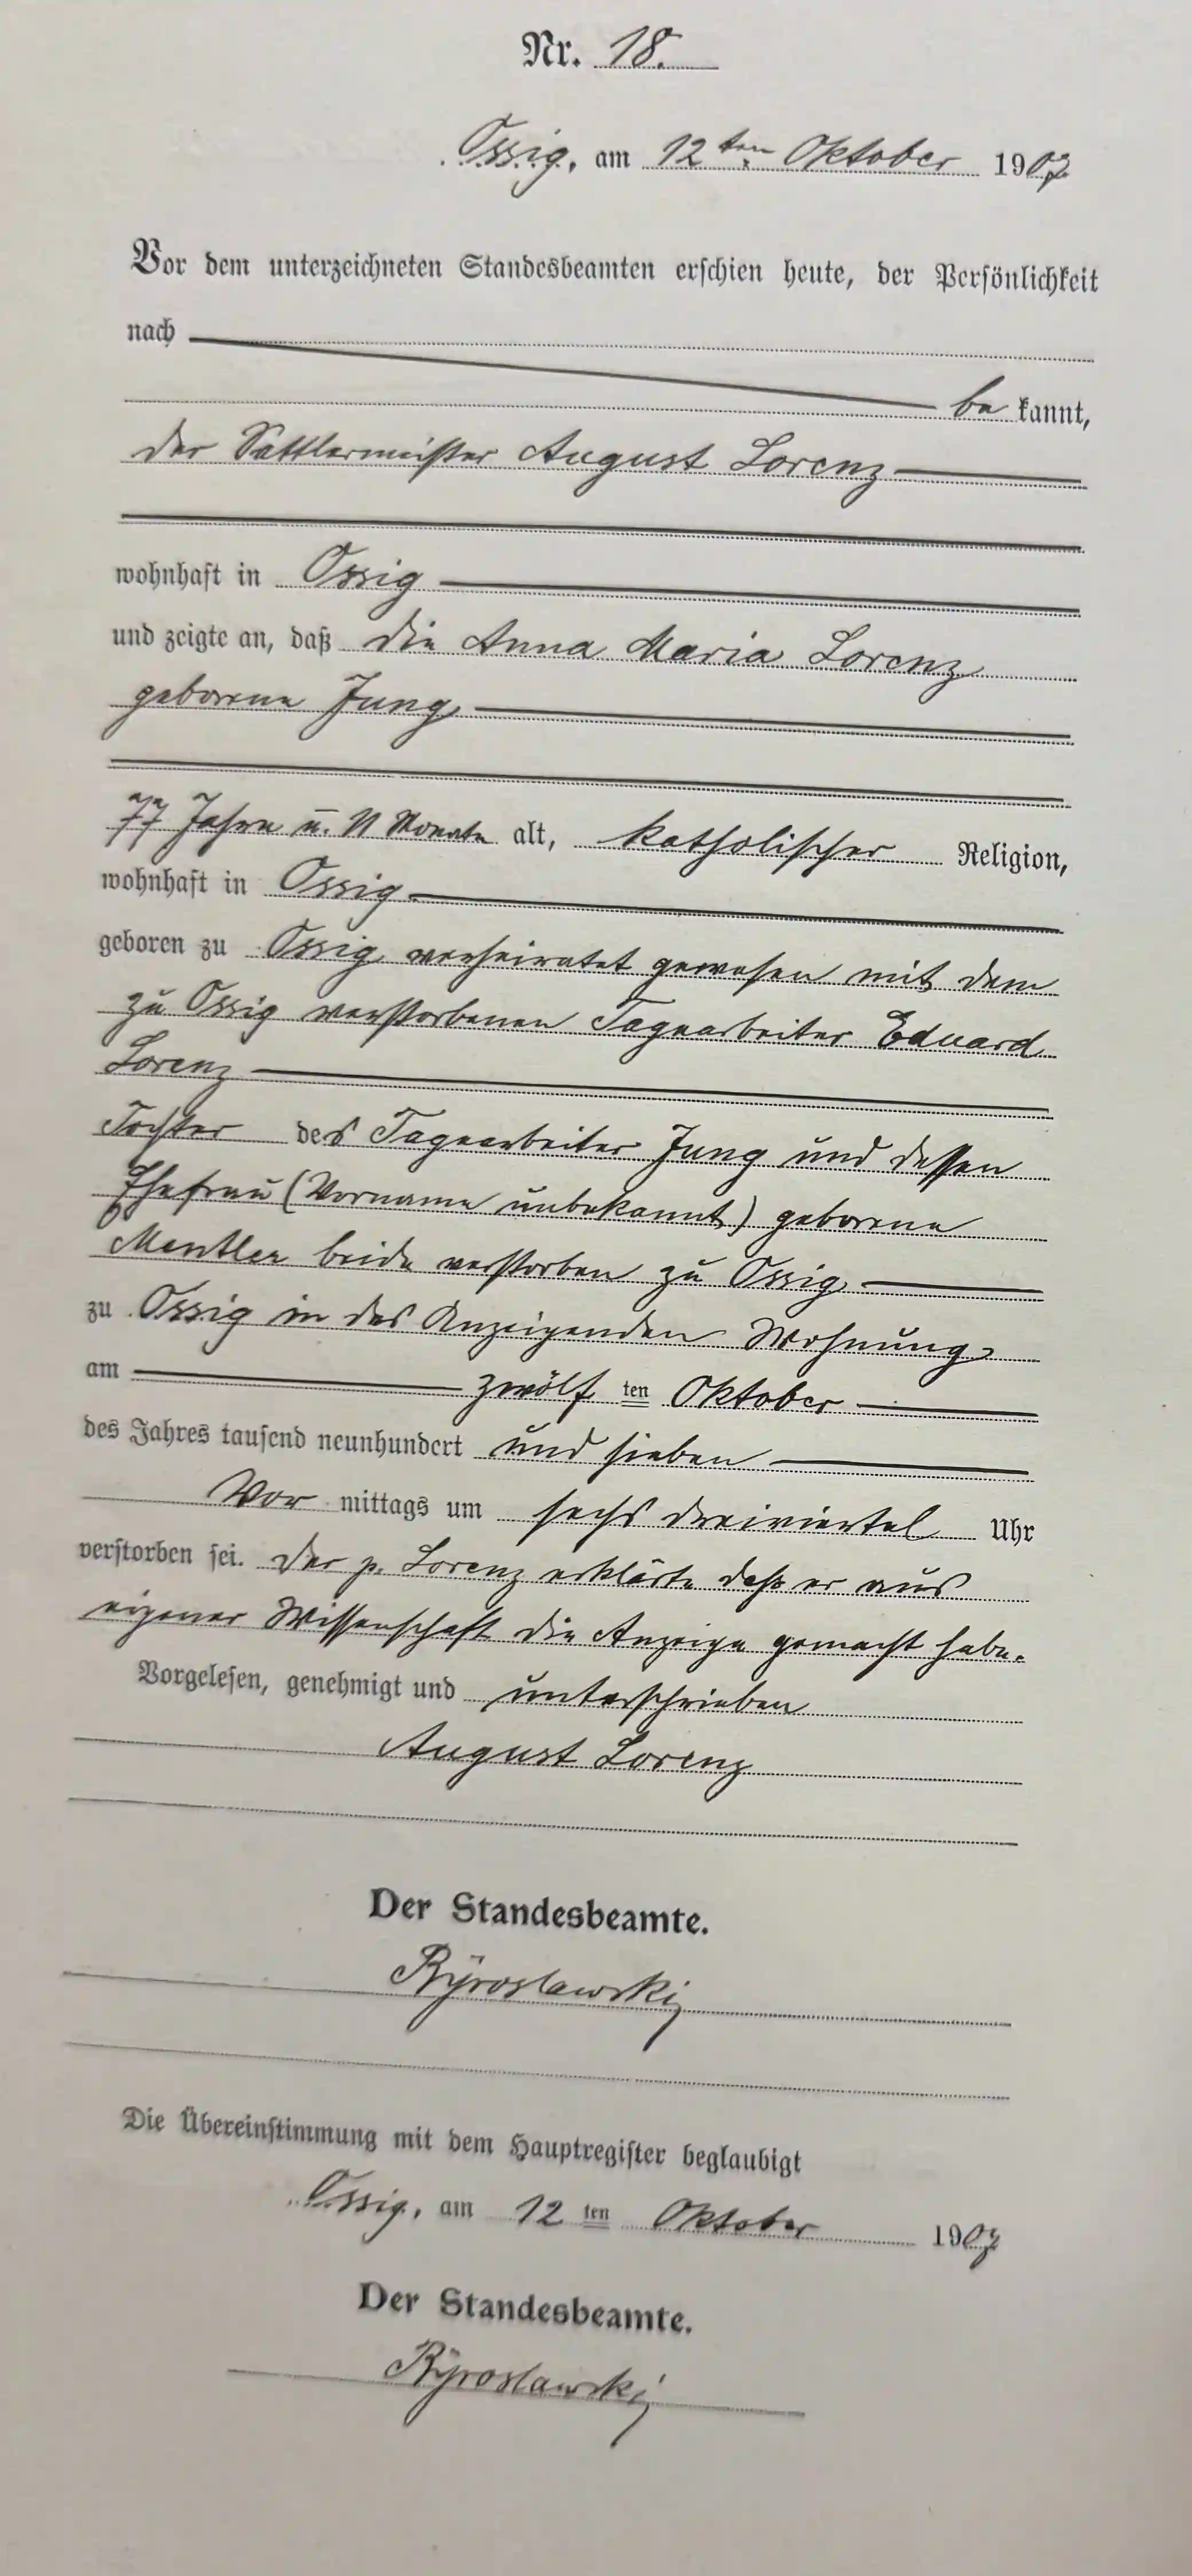 Nr. 18.
Ossig, am 12ten Oktober 1907
Vor dem unterzeichneten Standesbeamten erschien heute, der Persönlichkeit
nach
be kannt,
der Sattlermeister August Lorenz
wohnhaft in Ossig
und zeigte an, daß die Anna Maria Lorenz
geborene Jung
77 Jahre u. 11 Monate alt, katholischer Religion,
wohnhaft in Ossig
geboren zu Ossig verheiratet gewesen mit dem
zu Ossig verstorbenen Tagearbeiter Eduard
Lorenz
Tochter des Tagearbeiter Jung und dessen
Ehefrau (Vorname unbekannt) geborene
Mentler beide verstorben zu Ossig
zu Ossig in des Anzeigenden Wohnung
am zwölf ten Oktober
des Jahres tausend neunhundert und sieben
Vor mittags um sechs dreiviertel Uhr
verstorben sei. Der p. Lorenz erklärte daß er aus
eigener Wissenschaft die Anzeige gemacht habe.
Vorgelesen, genehmigt und unterschrieben
August Lorenz
Der Standesbeamte.
Die Übereinstimmung mit dem Hauptregister beglaubigt
Ossig, am 12 ten Oktober 1907
Der Standesbeamte.